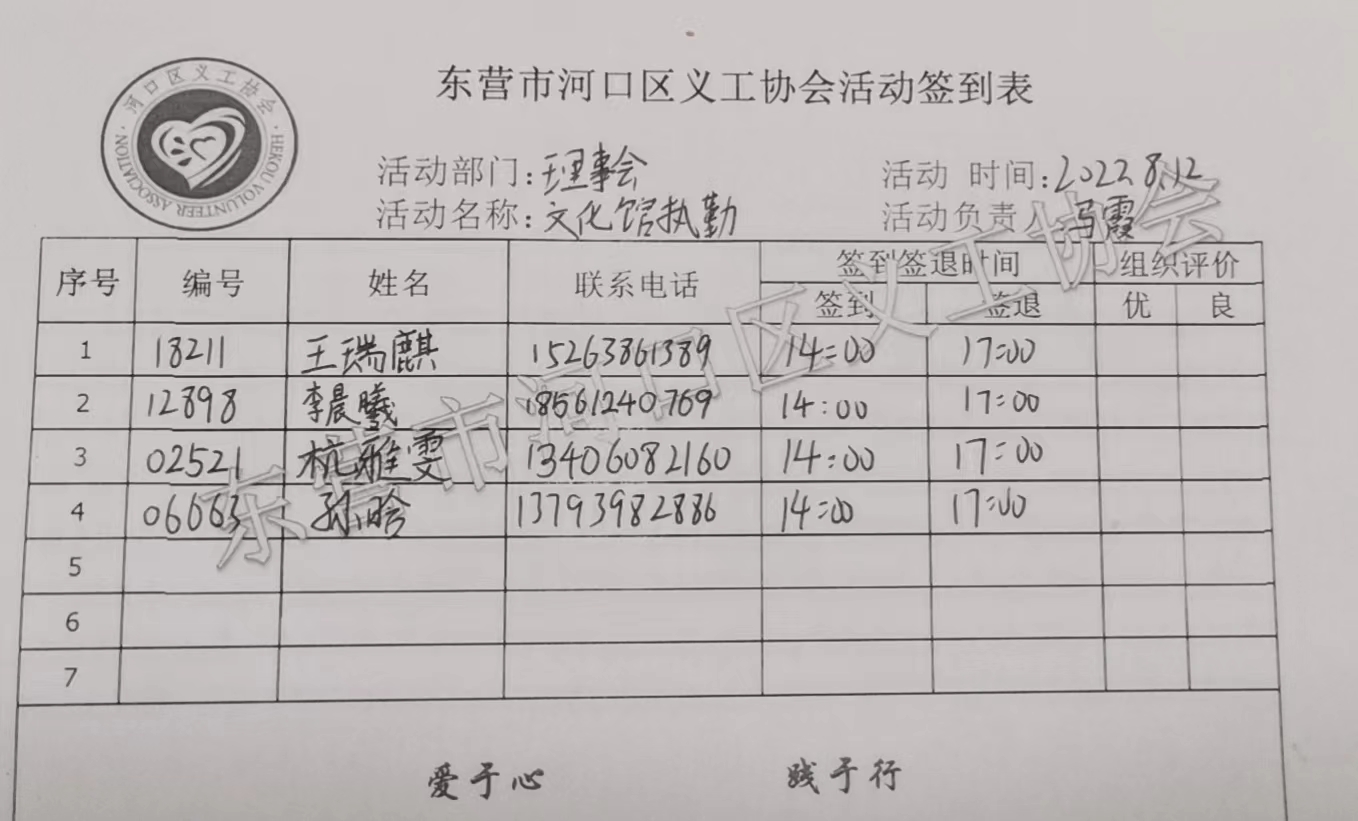 东营市河口区义工协会活动签到表
河口区义工协会
HEKOU VOLUNTEER ASSOCIATION
活动部门:理事会 活动 时间:2022.8.12
活动名称:文化馆执勤 活动负责人:冯霞
序号 编号 姓名 联系电话 签到签退时间 组织评价
签到 签退 优 良
1 18211 王瑞麒 15263861389 14:00 17:00
2 12898 李晨曦 18561240769 14:00 17:00
3 02521 杭雅雯 13406082160 14:00 17:00
4 06663 孙晗 13793982886 14:00 17:00
5
6
7
爱于心 践于行
东营市河口区义工协会